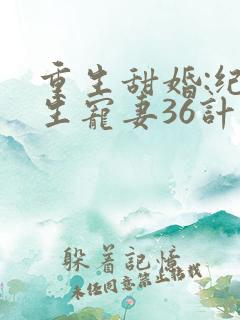 重生甜婚:纪
生寵妻36計
躲着記憶
未经同意禁止转载